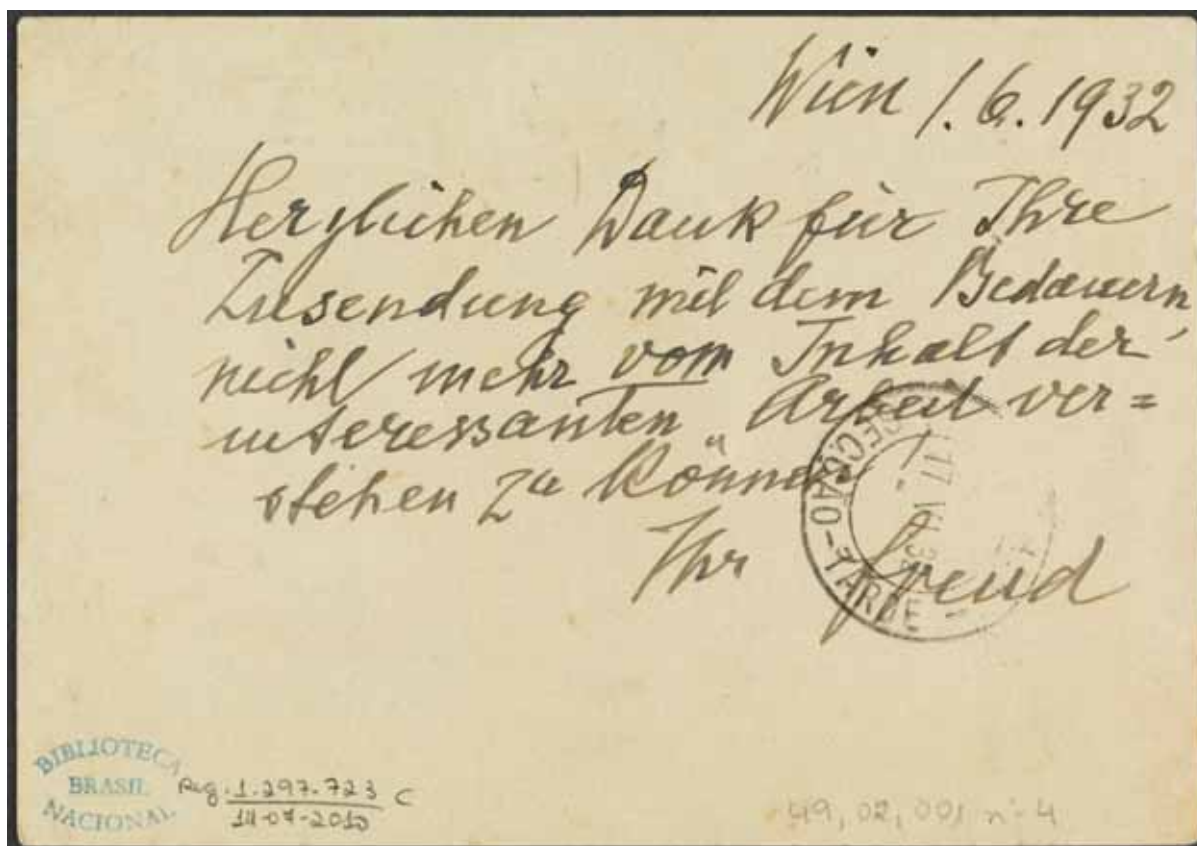 Wien 1.6.1932
Herzlichen Dank für Ihre
Zusendung mit dem Bedauern,
nicht mehr vom Inhalt der
interessanten Arbeit ver=
stehen zu können
Ihr Freud
SECÇÃO - TARDE -
17
BIBLIOTECA
BRASIL
NACIONAL
Reg. 1.297.723 C
49,02,001 nº 4